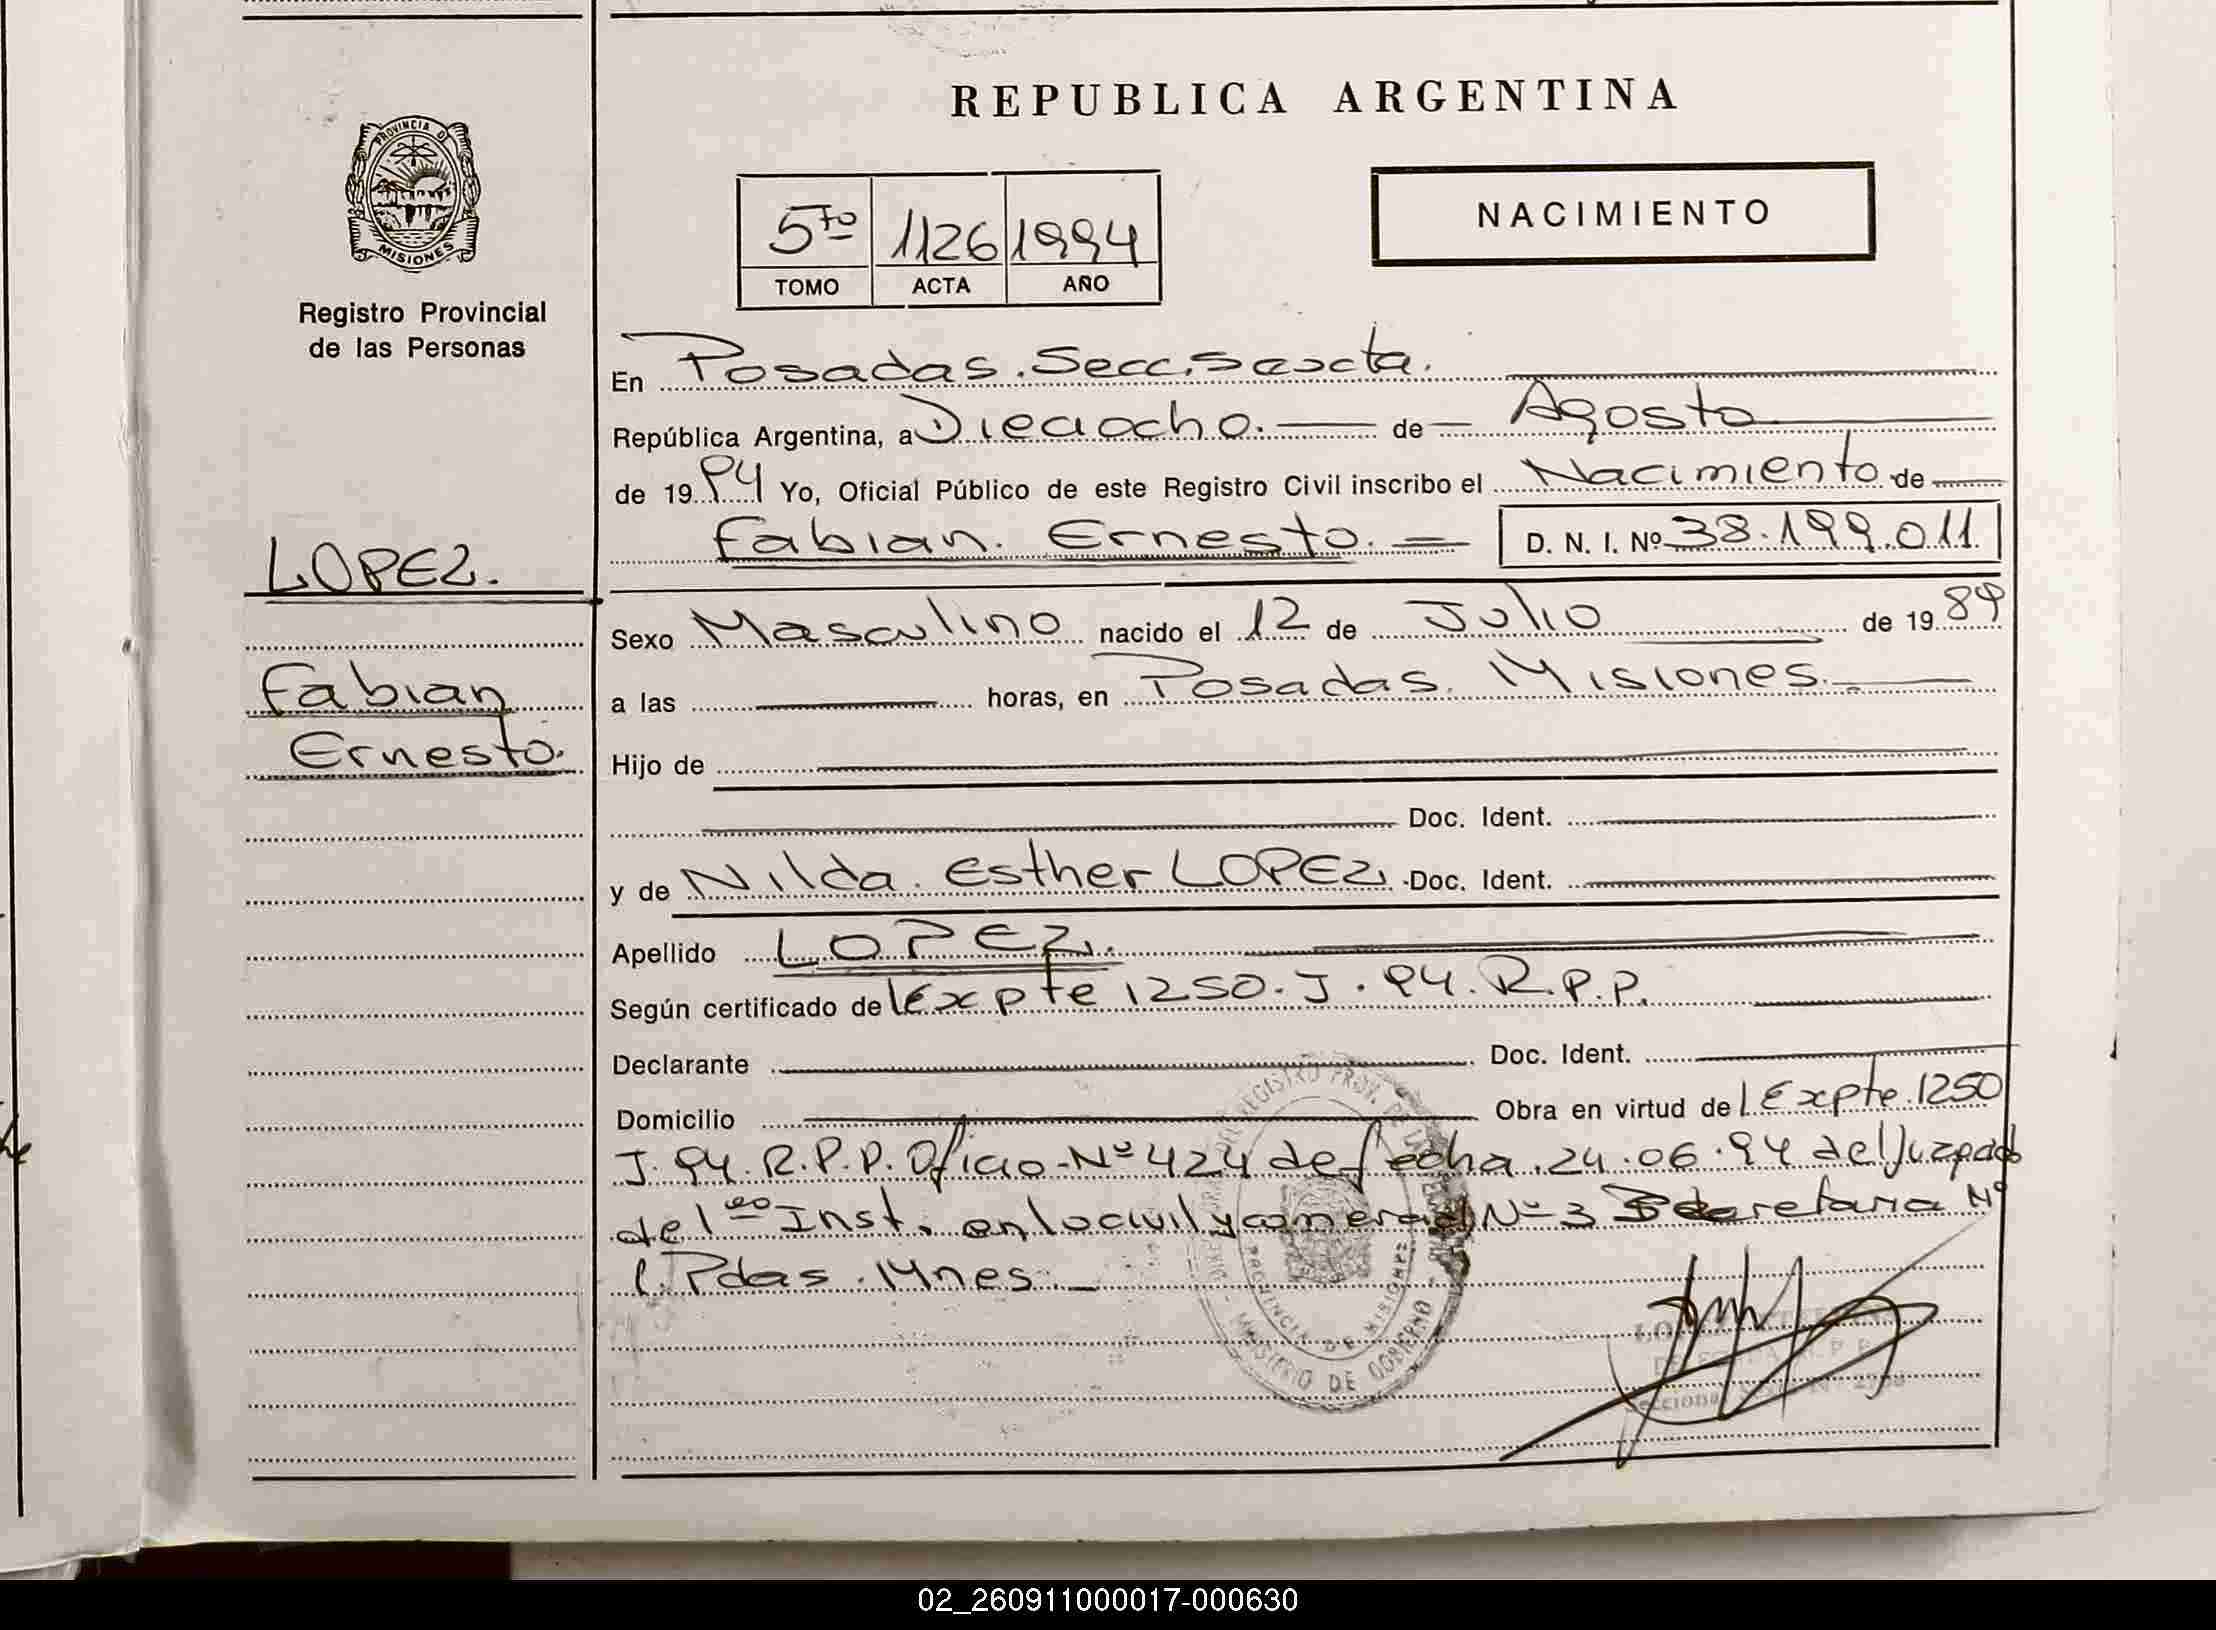 REPUBLICA ARGENTINA
PROVINCIA DE
MISIONES
Registro Provincial
de las Personas
5to 1126 1994
TOMO ACTA AÑO
NACIMIENTO
En Posadas. Secc. Sexcta.
República Argentina, a Dieciocho. de Agosto
de 1994 Yo, Oficial Público de este Registro Civil inscribo el Nacimiento de
Fabian. Ernesto. D. N. I. Nº 38.199.011
LOPEZ.
Fabian
Ernesto.
Sexo Masculino nacido el 12 de Julio de 1989
a las horas, en Posadas. Misiones.
Hijo de
Doc. Ident.
y de Nilda. Esther LOPEZ. Doc. Ident.
Apellido LOPEZ.
Según certificado de Expte 1250. J. 94. R.P.P.
Declarante Doc. Ident.
Domicilio Obra en virtud de Expte. 1250
J. 94. R.P.P. Oficio Nº 424 de fecha. 24.06.94 del Juzgado
de 1ero Inst. en lo civil y comercial Nº 3 Secretaria Nº
1. Pdas. Mnes.
PROVINCIA DE MISIONES
MINISTERIO DE GOBIERNO
02_260911000017-000630